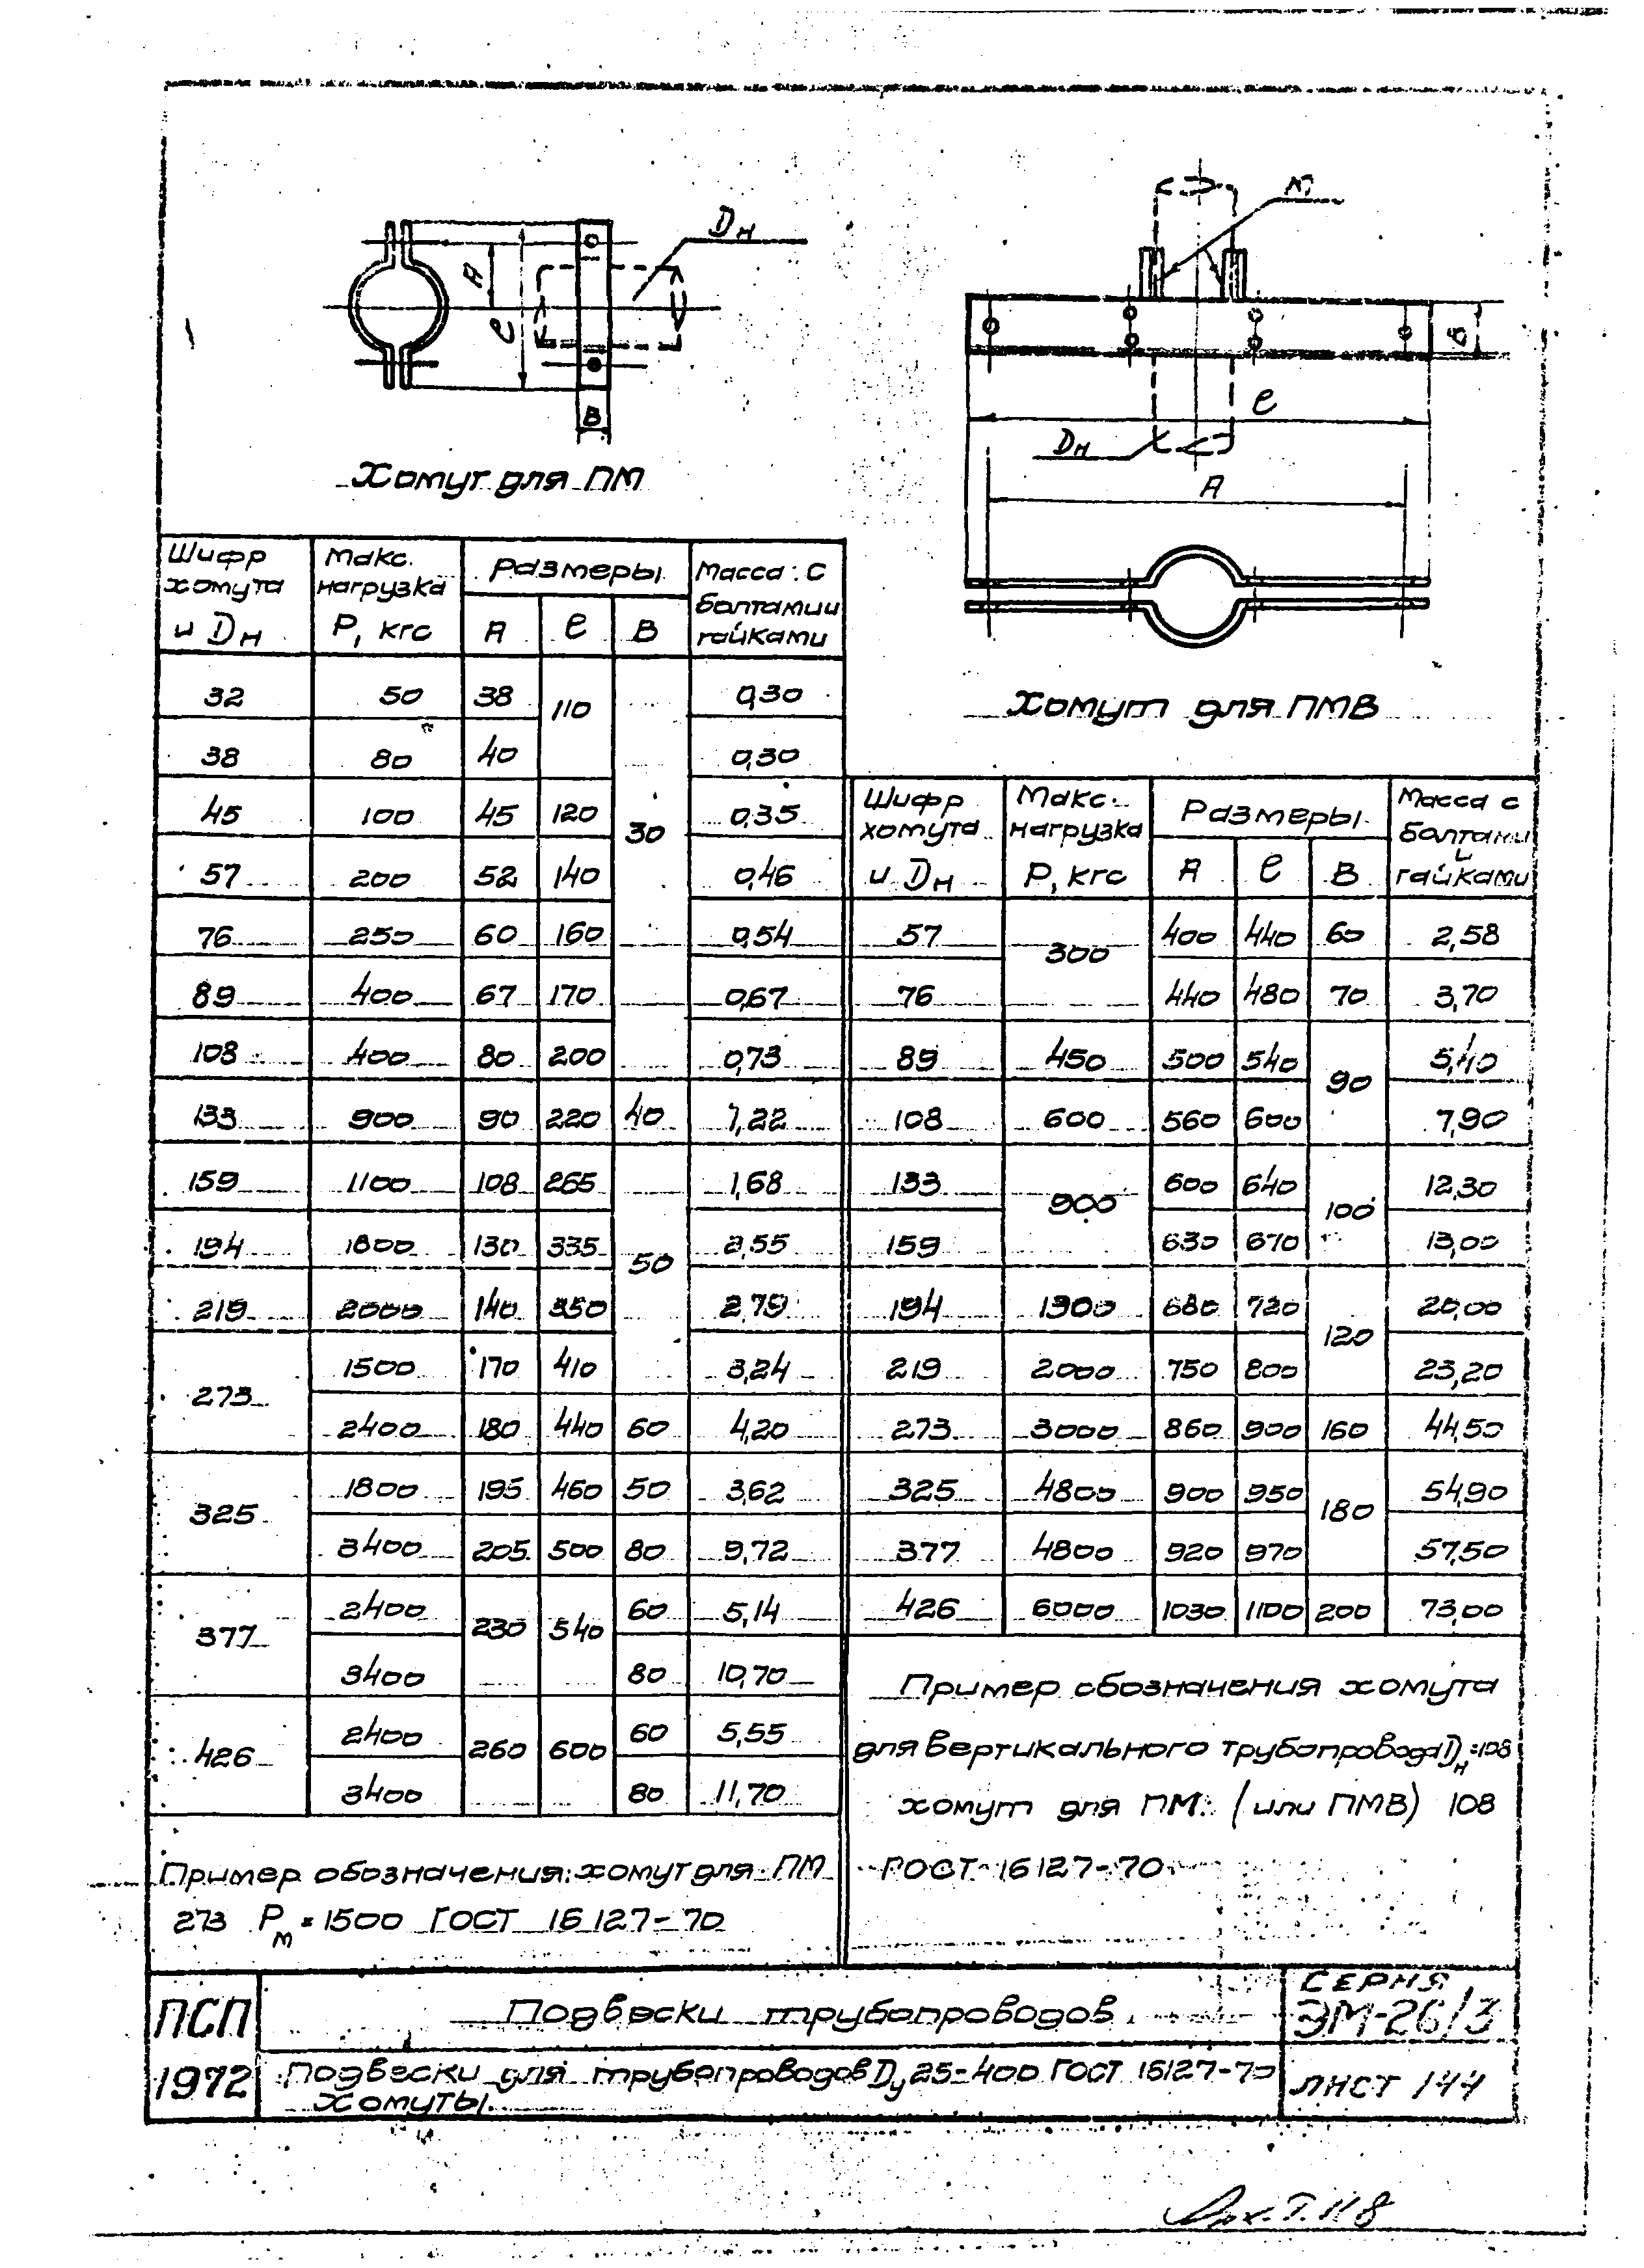 Dн
A
ℓ
В
Хомут для ПМ
М
В
ℓ
Dн
A
Хомут для ПМВ
Шифр хомута и Dн | Макс. нагрузка Р, кгс | Размеры | Масса с болтами и гайками
A | ℓ | В
32 | 50 | 38 | 110 | 30 | 0,30
38 | 80 | 40 | 0,30
45 | 100 | 45 | 120 | 0,35
57 | 200 | 52 | 140 | 0,46
76 | 250 | 60 | 160 | 0,54
89 | 400 | 67 | 170 | 0,67
108 | 400 | 80 | 200 | 0,73
133 | 900 | 90 | 220 | 40 | 1,22
159 | 1100 | 108 | 265 | 50 | 1,68
194 | 1800 | 130 | 335 | 2,55
219 | 2000 | 140 | 350 | 2,79
273 | 1500 | 170 | 410 | 3,24
2400 | 180 | 440 | 60 | 4,20
325 | 1800 | 195 | 460 | 50 | 3,62
3400 | 205 | 500 | 80 | 9,72
377 | 2400 | 230 | 540 | 60 | 5,14
3400 | 80 | 10,70
426 | 2400 | 260 | 600 | 60 | 5,55
3400 | 80 | 11,70
Пример обозначения: хомут для ПМ
273 Рм = 1500 ГОСТ 16127-70
Шифр хомута и Dн | Макс. нагрузка Р, кгс | Размеры | Масса с болтами и гайками
A | ℓ | В
57 | 300 | 400 | 440 | 60 | 2,58
76 | 440 | 480 | 70 | 3,70
89 | 450 | 500 | 540 | 90 | 5,40
108 | 600 | 560 | 600 | 7,90
133 | 900 | 600 | 640 | 100 | 12,30
159 | 630 | 670 | 13,00
194 | 1300 | 680 | 720 | 120 | 20,00
219 | 2000 | 750 | 800 | 23,20
273 | 3000 | 860 | 900 | 160 | 44,50
325 | 4800 | 900 | 950 | 180 | 54,90
377 | 4800 | 920 | 970 | 57,50
426 | 6000 | 1030 | 1100 | 200 | 73,00
Пример обозначения хомута
для вертикального трубопровода Dн=108
хомут для ПМ: (или ПМВ) 108
ГОСТ 16127-70
ПСП
1972
Подвески трубопроводов
СЕРИЯ
ЭМ-26/3
Подвески для трубопроводов Dу 25-400 ГОСТ 16127-70
Хомуты.
ЛИСТ 144